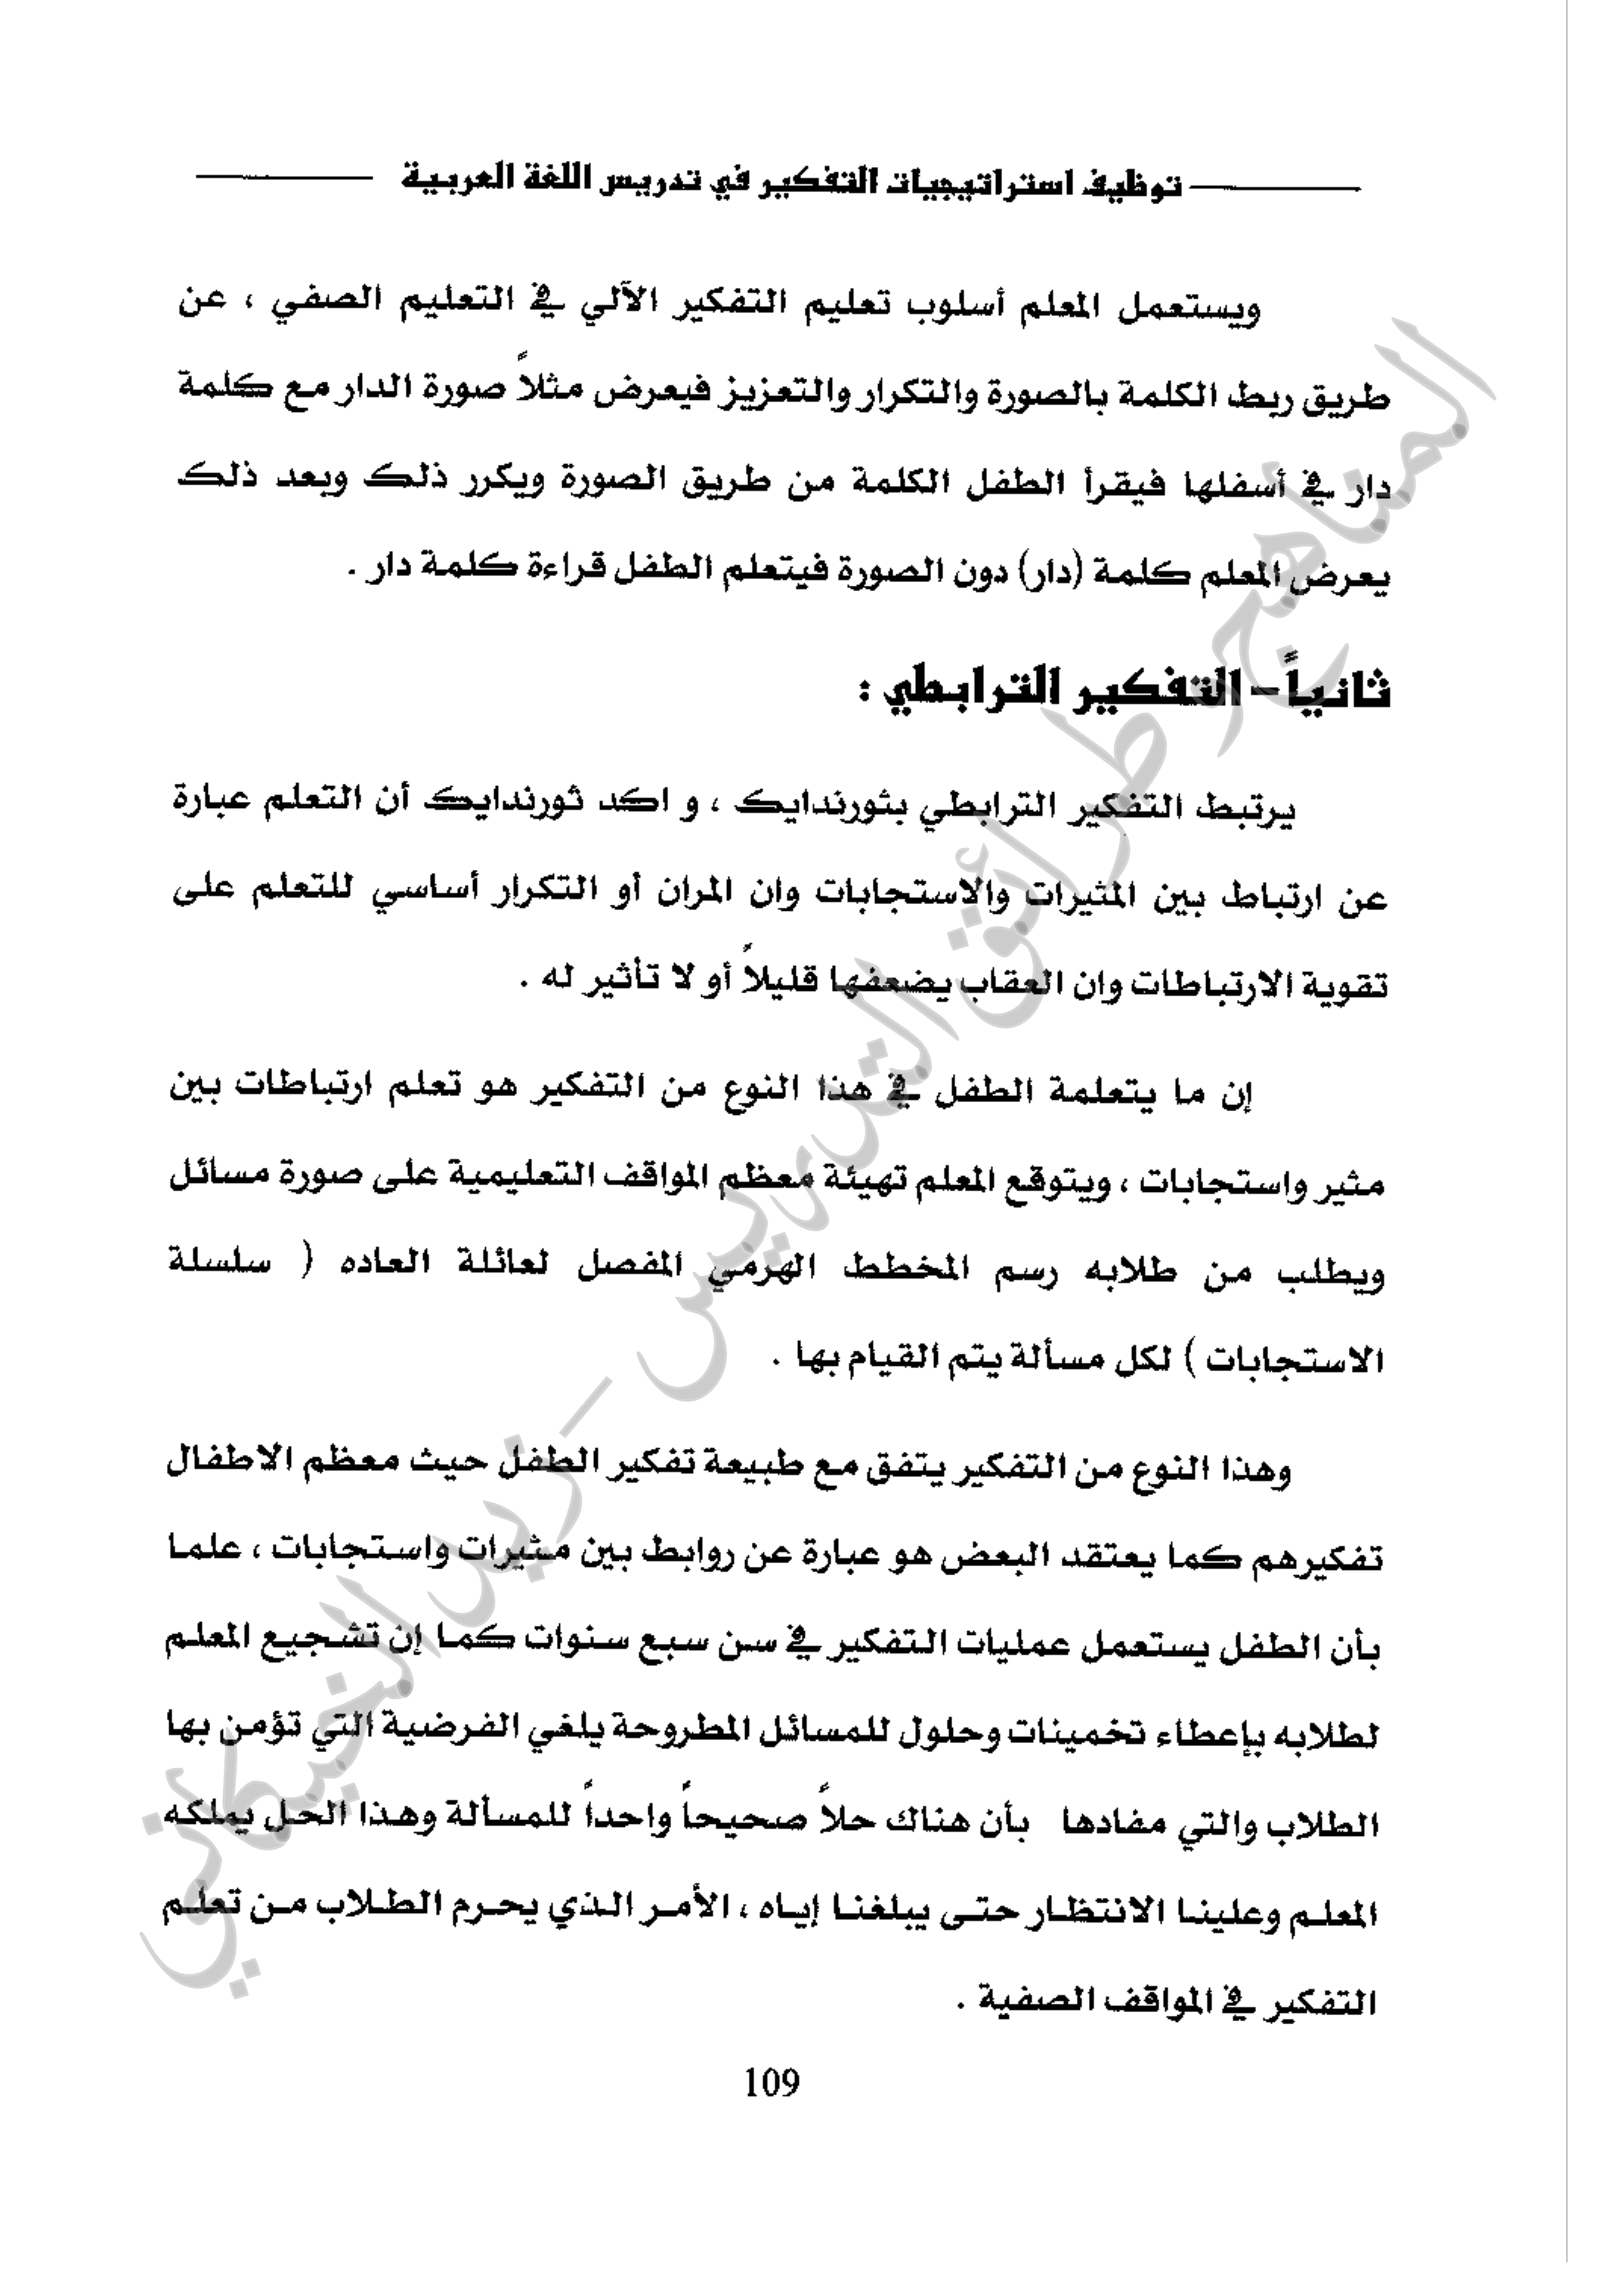 توظيف استراتيجيات التفكير في تدريس اللغة العربية
ويستعمل المعلم أسلوب تعليم التفكير الآلي في التعليم الصفي ، عن
طريق ربط الكلمة بالصورة والتكرار والتعزيز فيعرض مثلاً صورة الدار مع كلمة
دار في أسفلها فيقرأ الطفل الكلمة من طريق الصورة ويكرر ذلك وبعد ذلك
يعرض المعلم كلمة (دار) دون الصورة فيتعلم الطفل قراءة كلمة دار .
ثانياً – التفكير الترابطي :
يرتبط التفكير الترابطي بثورندايك ، و اكد ثورندايك أن التعلم عبارة
عن ارتباط بين المثيرات والاستجابات وان المران أو التكرار أساسي للتعلم على
تقوية الارتباطات وان العقاب يضعفها قليلاً أو لا تأثير له .
إن ما يتعلمة الطفل في هذا النوع من التفكير هو تعلم ارتباطات بين
مثير واستجابات ، ويتوقع المعلم تهيئة معظم المواقف التعليمية على صورة مسائل
ويطلب من طلابه رسم المخطط الهرمي المفصل لعائلة العاده ( سلسلة
الاستجابات ) لكل مسألة يتم القيام بها .
وهذا النوع من التفكير يتفق مع طبيعة تفكير الطفل حيث معظم الاطفال
تفكيرهم كما يعتقد البعض هو عبارة عن روابط بين مثيرات واستجابات ، علما
بأن الطفل يستعمل عمليات التفكير في سن سبع سنوات كما إن تشجيع المعلم
لطلابه بإعطاء تخمينات وحلول للمسائل المطروحة يلغي الفرضية التي تؤمن بها
الطلاب والتي مفادها بأن هناك حلاً صحيحاً واحداً للمسألة وهذا الحل يملكه
المعلم وعلينا الانتظار حتى يبلغنا إياه ، الأمر الذي يحرم الطلاب من تعلم
التفكير في المواقف الصفية .
109
المناهج وطرائق التدريس – زيد الخيكاني